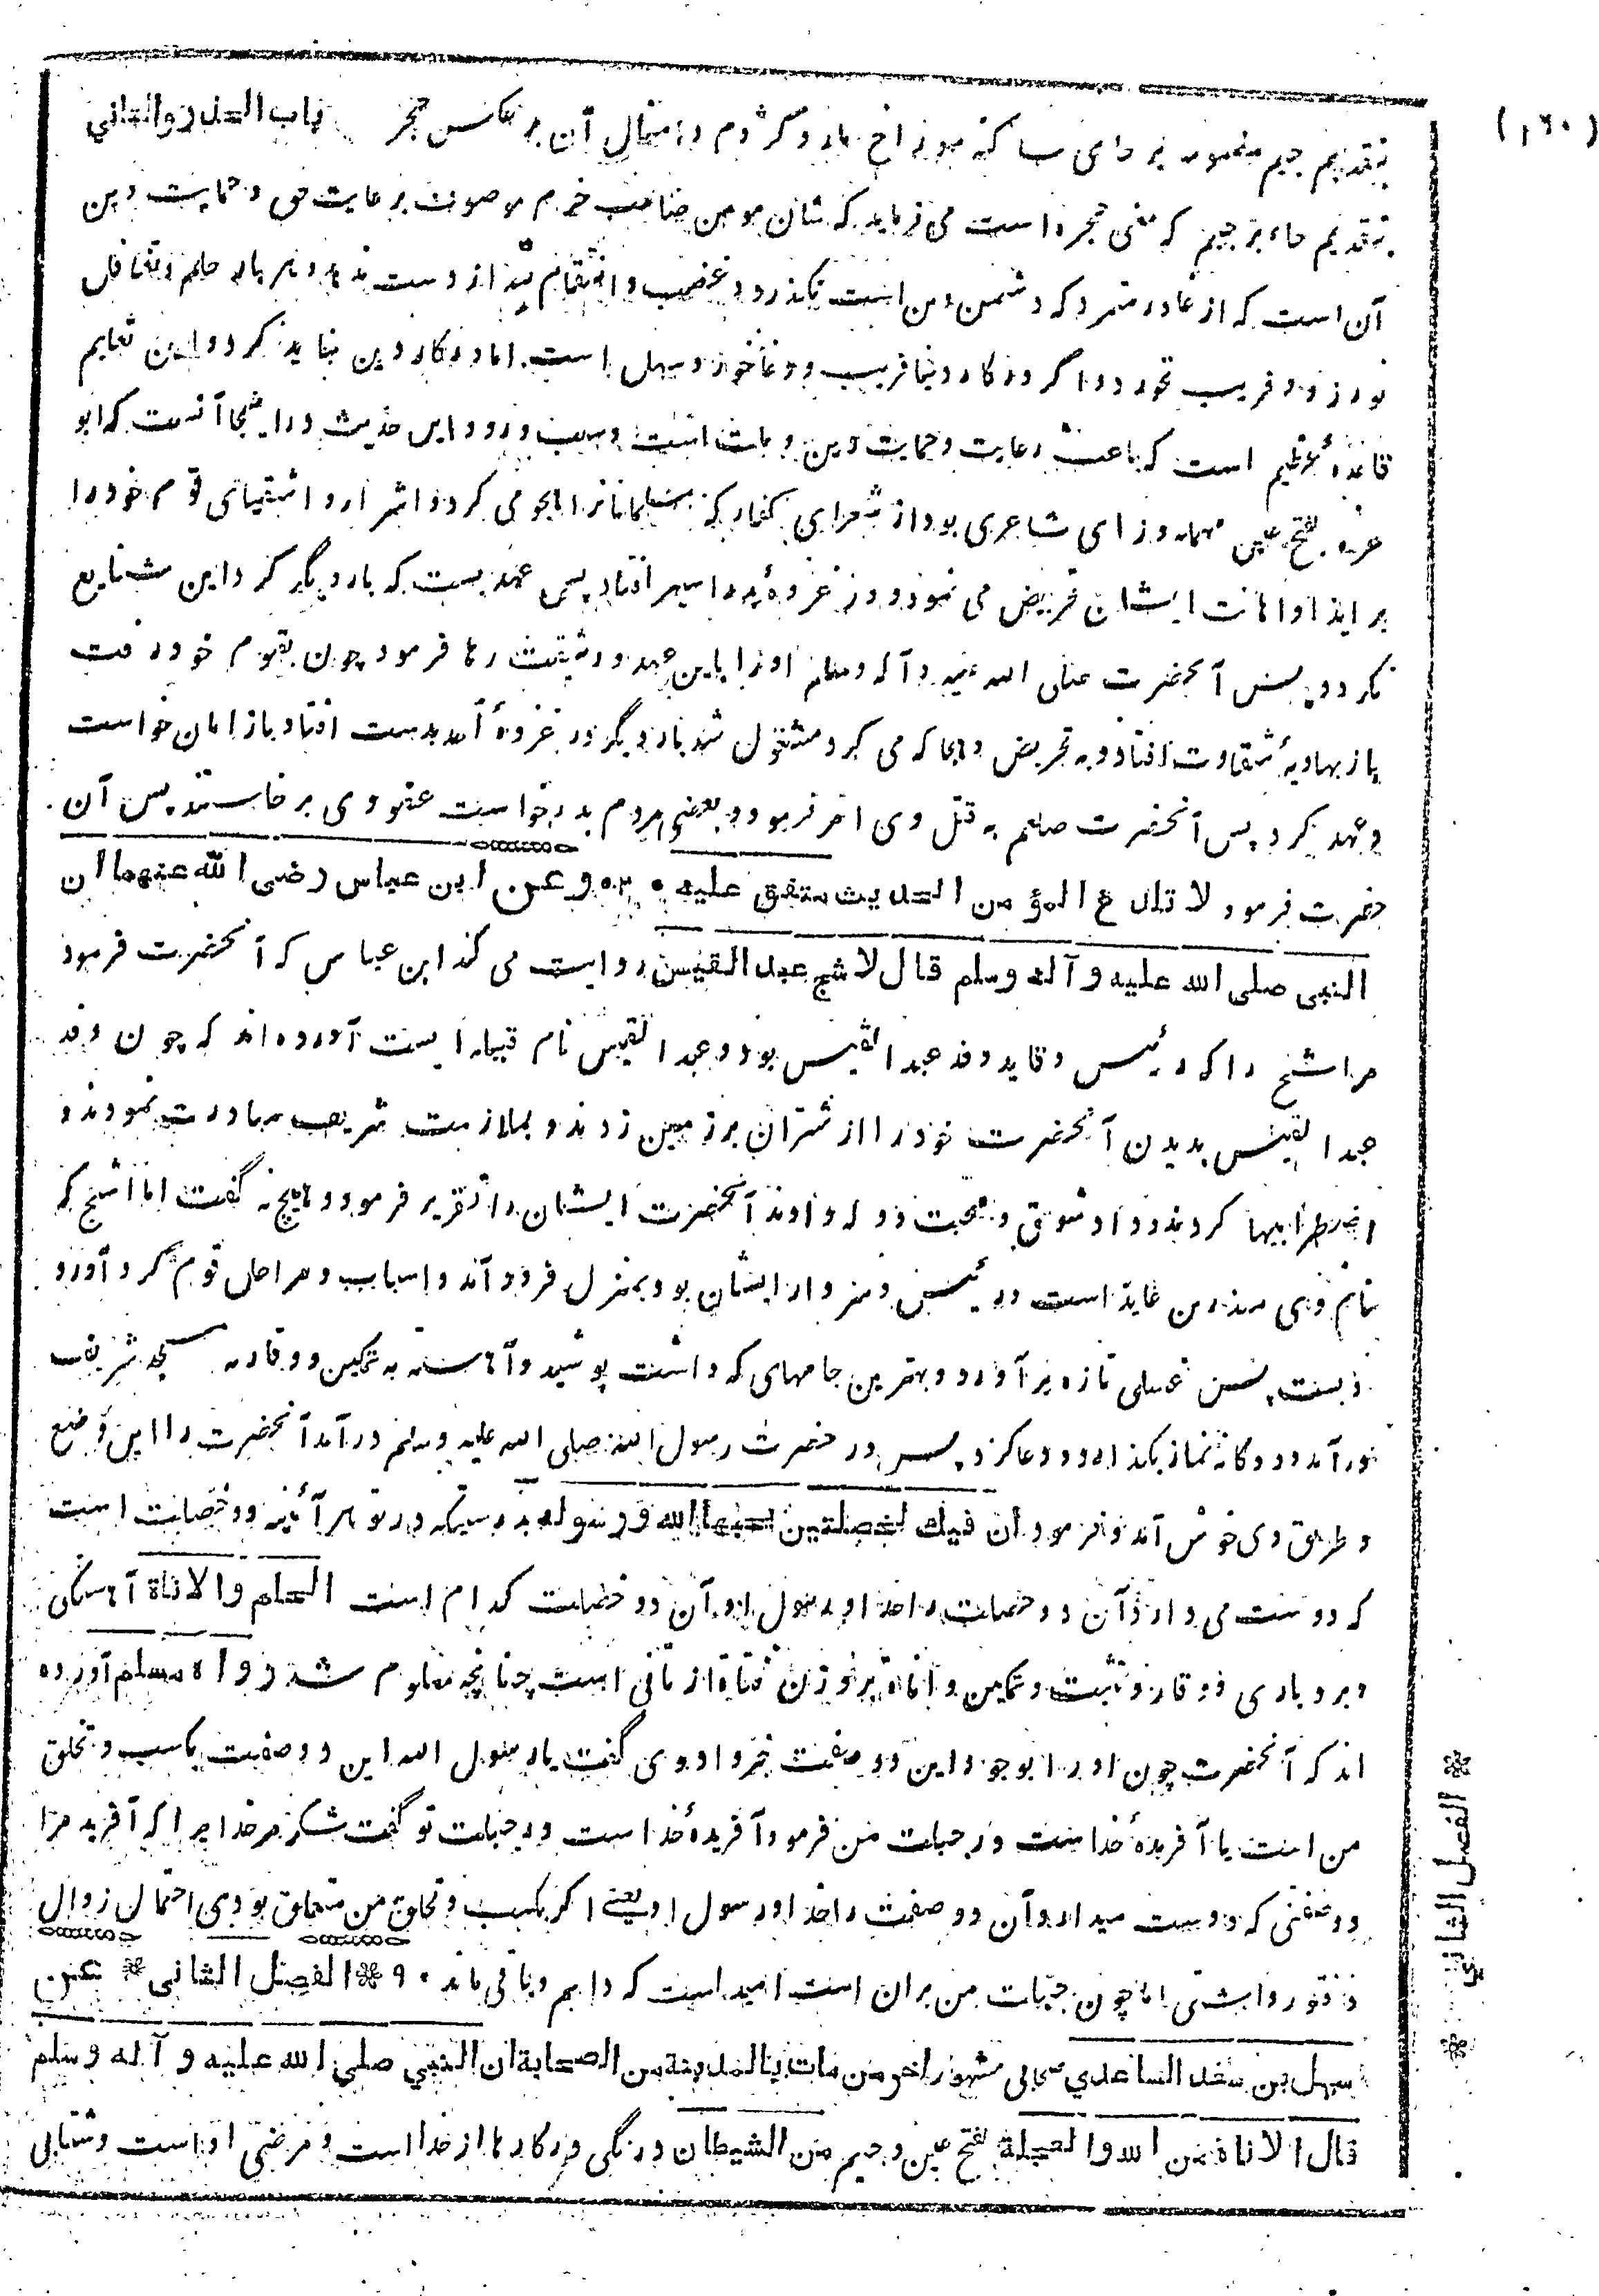 (١٦٠)
باب الحذر والتاني
بتقدیم جیم مضمومه بر حای ساکنه سوراخ مار و کژدم و امثال آن بر عکس حجر
بتقدیم حاء بر جیم که معنی حجره است می فرماید که شان مومن صاحب حزم موصوف برعایت حق و حمایت دین
آن است که از غادر متمرد که دشمن دین است نگذرد و غضب و انتقام لله از دست ندهد و هر بار حلم و تغافل
نورزد و فریب نخورد و اگر در کار دنیا فریب و دغا خورد سهل است اما در کار دین نباید کرد و این تعلیم
قاعدهٔ عظیم است که باعث رعایت و حمایت دین و ملت است و سبب ورود این حدیث در اینجا آنست که ابو
عزه بفتح عین مهمله و زای شاعری بود از شعرای کفار که مسلمانانرا هجو می کرد و اشرار و اشقیای قوم خود را
بر ایذا و اهانت ایشان تحریض می نمود و در غزوهٔ بدر اسیر افتاد پس عهد بست که بار دیگر گرد این شنایع
نگردد پس آنحضرت صلی الله علیه و آله وسلم او را باین عهد و رشیقت رها فرمود چون بقوم خود رفت
باز بهاویهٔ شقاوت افتاد و به تحریض و هجا که می کرد مشغول شد بار دیگر در غزوهٔ احد بدست افتاد باز امان خواست
و عهد کرد پس آنحضرت صلعم به قتل وی امر فرمود و بعضی مردم بدرخواست عفو وی برخاستند پس آن
حضرت فرمود لا تلدغ المؤمن الحدیث متفق علیه وعن ابن عباس رضی الله عنهما ان
النبی صلی الله علیه وآله وسلم قال لاشج عبد القیس روایت می کند ابن عباس که آنحضرت فرمود
مر اشج را که رئیس و قاید وفد عبد القیس بود و عبد القیس نام قبیله ایست آورده اند که چون وفد
عبد القیس بدیدن آنحضرت خود را از شتران بر زمین زدند و بملازمت شریف مبادرت نمودند و
اضطرابیها کردند و داد شوق و محبت و وله دادند آنحضرت ایشان را تقریر فرمود و هیچ نه گفت اما اشج که
نام وی منذر بن عاید است و رئیس و سردار ایشان بود بمنزل فرود آمد و اسباب و مراحل قوم گرد آورد و
ببست پس غسلی تازه بر آورد و بهترین جامهای که داشت پوشید و آهسته به تمکین و وقار به مسجد شریف
در آمد و دوگانه نماز بگذارد و دعا کرد پس در حضرت رسول الله صلی الله علیه وسلم در آمد آنحضرت را این وضع
و طریق وی خوش آمد و فرمود ان فیك لخصلتین یحبهما الله ورسوله بدرستیکه در تو هر آئینه دو خصلت است
که دوست می دارد آن دو خصلت را خدا و رسول او آن دو خصلت کدام است الحلم والاناة آهستگی
و بردباری و وقار و تثبت و تمکین و اناة بر وزن قناة از تانی است چنانچه معلوم شد رواه مسلم آورده
اند که آنحضرت چون او را بوجود این دو صفت خبر داد وی گفت یا رسول الله این دو صفت بکسب و تخلق
من است یا آفریدهٔ خداست در جبلت من فرمود آفریدهٔ خداست در جبلت تو گفت شکر مر خدایرا که آفرید مرا
در صفتی که دوست میدارد آن دو صفت را خدا و رسول او یعنی اگر بکسب و تخلق من متعلق بودی احتمال زوال
و فتور داشتی اما چون جبلت من بران است امید است که دایم و باقی ماند * الفصل الثانی * عن
سهل بن سعد الساعدي صحابی مشهور آخر من مات بالمدینة من الصحابة ان النبي صلی الله علیه وآله وسلم
قال الاناة من الله والعجلة بفتح عین و جیم من الشیطان درنگی در کارها از خدا است و مرضی او است و شتابی
* الفصل الثاني *